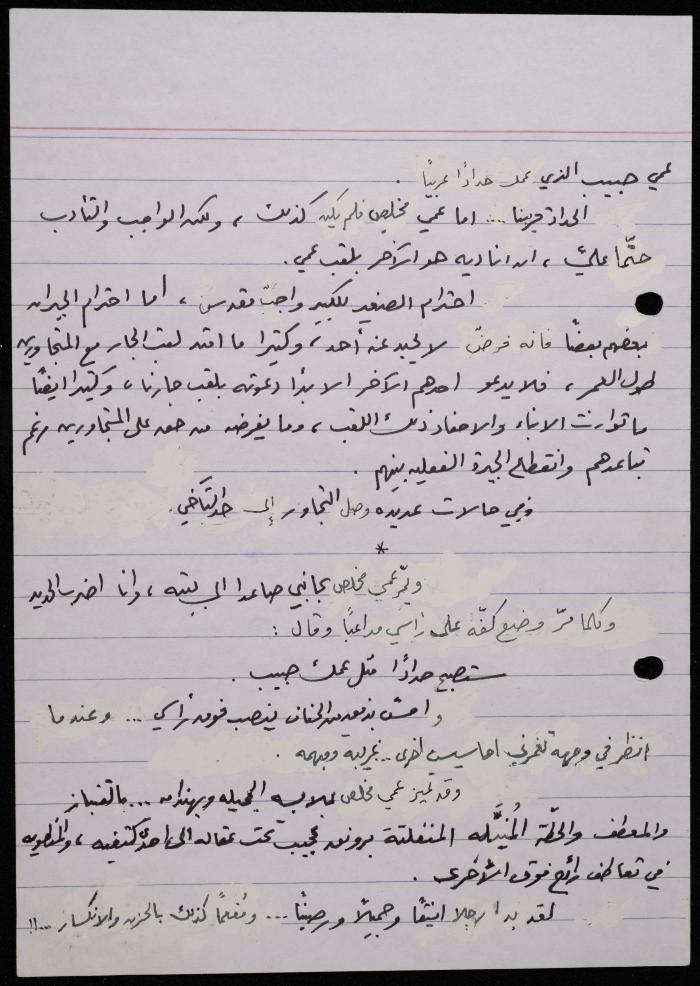 عمي حبيب الذي عمل حدادًا عربيًا .
الحداد قريبنا ... اما عمي مخلص فلم يكن كذلك ، ولكن الواجب والتأدب
حتّما عليّ ، ان اناديه هو الآخر بلقب عمي .
احترام الصغير للكبير واجبٌ مقدس ، أما احترام الجيران
بعضهم بعضًا فانه فرضٌ لا يحيد عنه أحد ، وكثيرا ما امتد لقب الجار مع المتجاورين
طول العمر ، فلا يدعو احدهم الآخر الا بدأ دعوته بلقب جارنا ، وكثيرا ايضًا
ما توارث الابناء والاحفاد ذلك اللقب ، وما يفرضه من حق على المتجاورين رغم
تباعدهم وانقطاع الجيرة الفعليه بينهم .
وفي حالات عديده وصل التجاور إلى حد التآخي .
*
ويمرّ عمي مخلص بجانبي صاعدا الى بيته ، وانا اضرب الحديد
وكلما مرّ وضع كفّه على رأسي مداعبًا وقال :
ستصبح حدادًا مثل عمك حبيب .
وأحسّ بذوب من الحنان ينصب فوق رأسي ... وعندما
انظر في وجهه تغمرني احاسيس اخرى .. غريبة ومبهمه .
وقد تميز عمي مخلص بملابسه الجميله وبهندامه ... بالقنباز
والمعطف والحطّة المُنيَّله المنفلتة برونق عجيب تحت عقاله الى احدى كتفيه ، والمطويه
في تعاطف رائع فوق الأخرى .
لقد بدا رجلا انيقًا وجميلًا ورصينًا ... ومُفعمًا كذلك بالحزن والانكسار ...!!